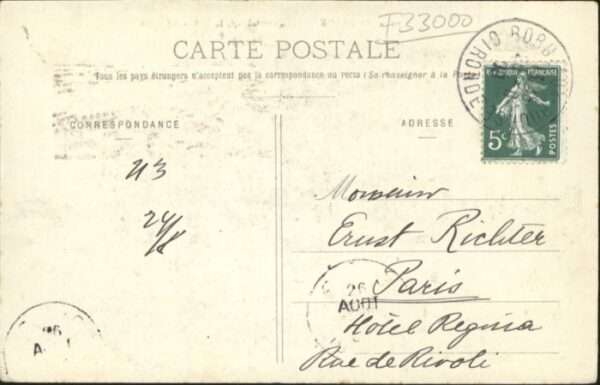 F33000
CARTE POSTALE
Tous les pays étrangers n'acceptent pas la correspondance au recto (Se renseigner à la Poste
CORRESPONDANCE
ADRESSE
GIRONDE
FRANÇAISE
5c
POSTES
U3
24/8
Monsieur
Ernst Richter
Paris
Hôtel Regina
Rue de Rivoli
26
AOUT
26
A